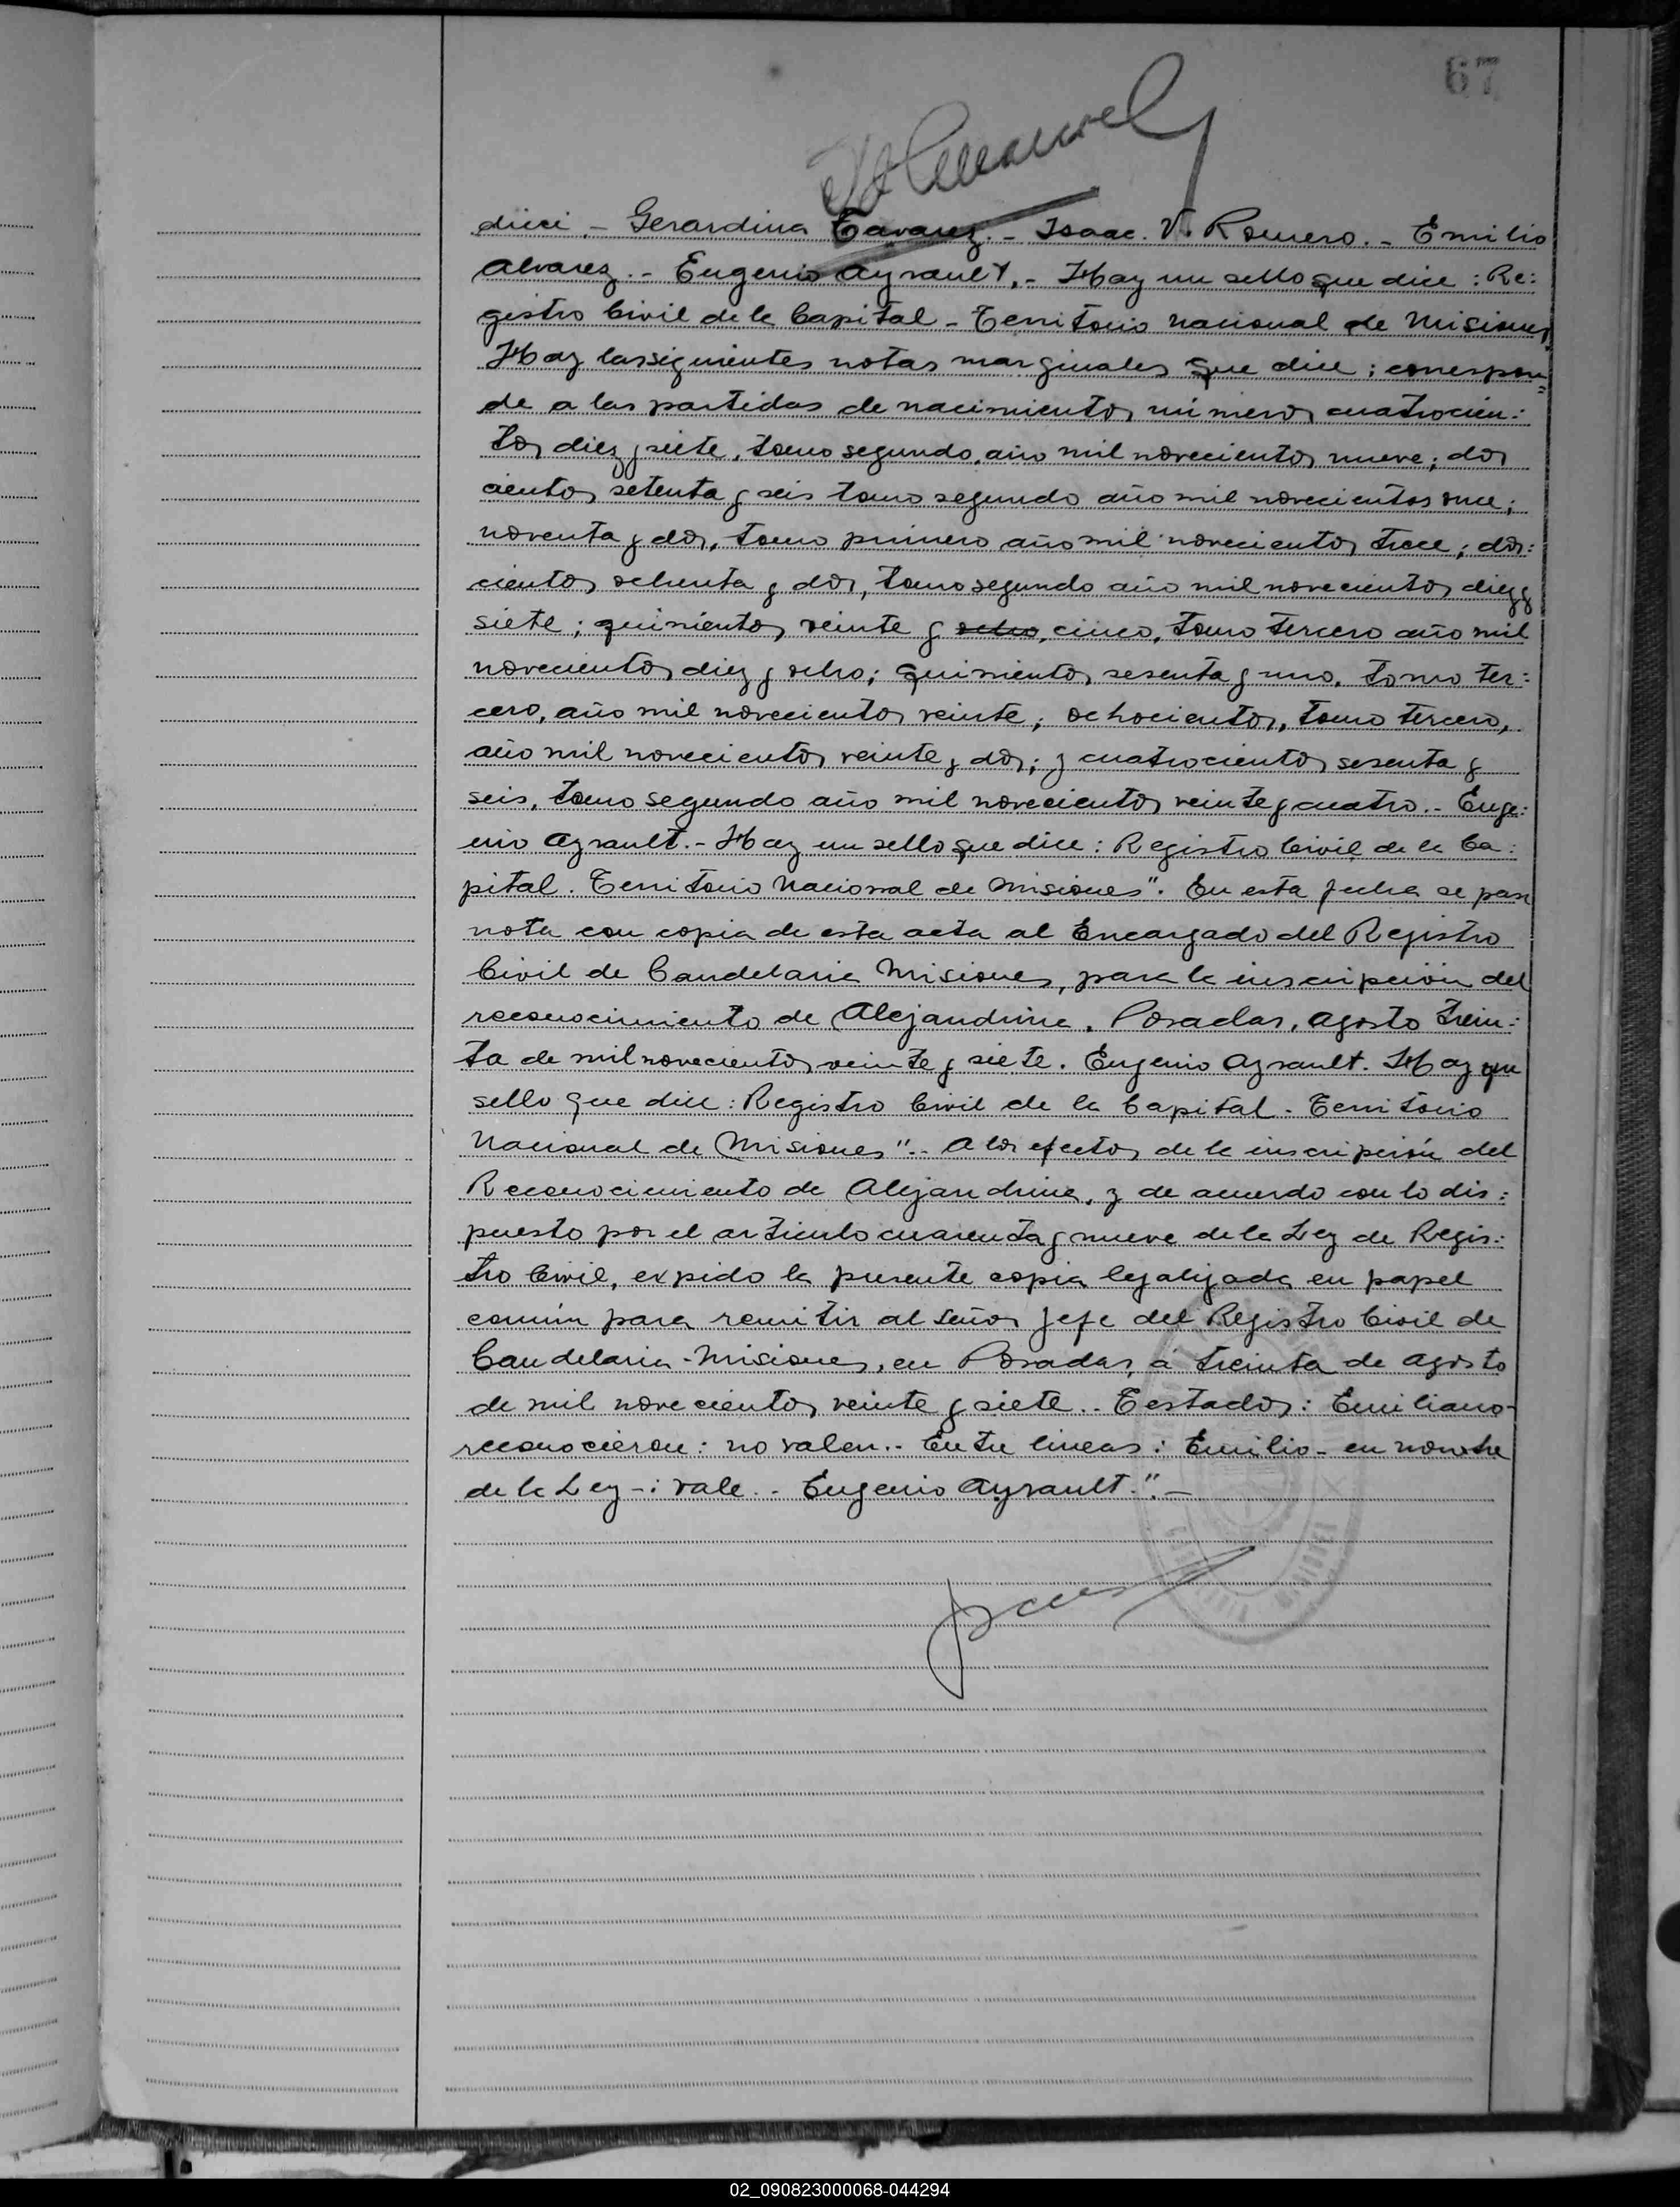 67
dicci.- Gerardina Tavarez.- Isaac. V. Romero.- Emilio
Alvarez.- Eugenio Ayrault.- Hay un sello que dice: Re:
gistro Civil de la Capital - Territorio Nacional de Misiones
Hay las siguientes notas marginales que dice; correspon=
de a las partidas de nacimientos números cuatrocien:
tos diez y siete, tomo segundo, año mil novecientos nueve; dos
cientos setenta y seis tomo segundo año mil novecientos once;
noventa y dos, tomo primero año mil novecientos trece; dos:
cientos ochenta y dos, tomo segundo año mil novecientos diez y
siete; quinientos veinte y ocho, cinco, tomo tercero año mil
novecientos diez y ocho; quinientos sesenta y uno, tomo ter:
cero, año mil novecientos veinte; ochocientos, tomo tercero,
año mil novecientos veinte y dos; y cuatrocientos sesenta y
seis, tomo segundo año mil novecientos veinte y cuatro.- Euge:
nio Ayrault.- Hay un sello que dice: Registro Civil de la Ca:
pital. Territorio Nacional de Misiones". En esta fecha se pasa
nota con copia de esta acta al Encargado del Registro
Civil de Candelaria Misiones, para la inscripción del
reconocimiento de Alejandrina. Posadas, Agosto trein:
ta de mil novecientos veinte y siete. Eugenio Ayrault. Hay un
sello que dice: Registro Civil de la Capital. Territorio
Nacional de Misiones".- A los efectos de la inscripción del
Reconocimiento de Alejandrina, y de acuerdo con lo dis:
puesto por el artículo cuarenta y nueve de la Ley de Regis:
tro Civil, expido la presente copia legalizada en papel
común para remitir al Señor Jefe del Registro Civil de
Candelaria-Misiones, en Posadas, á treinta de Agosto
de mil novecientos veinte y siete.- Testados: Emiliano-
reconocieron: no valen.- Entre lineas: Emilio- en nombre
de la Ley-: vale.- Eugenio Ayrault.".-
02_090823000068-044294